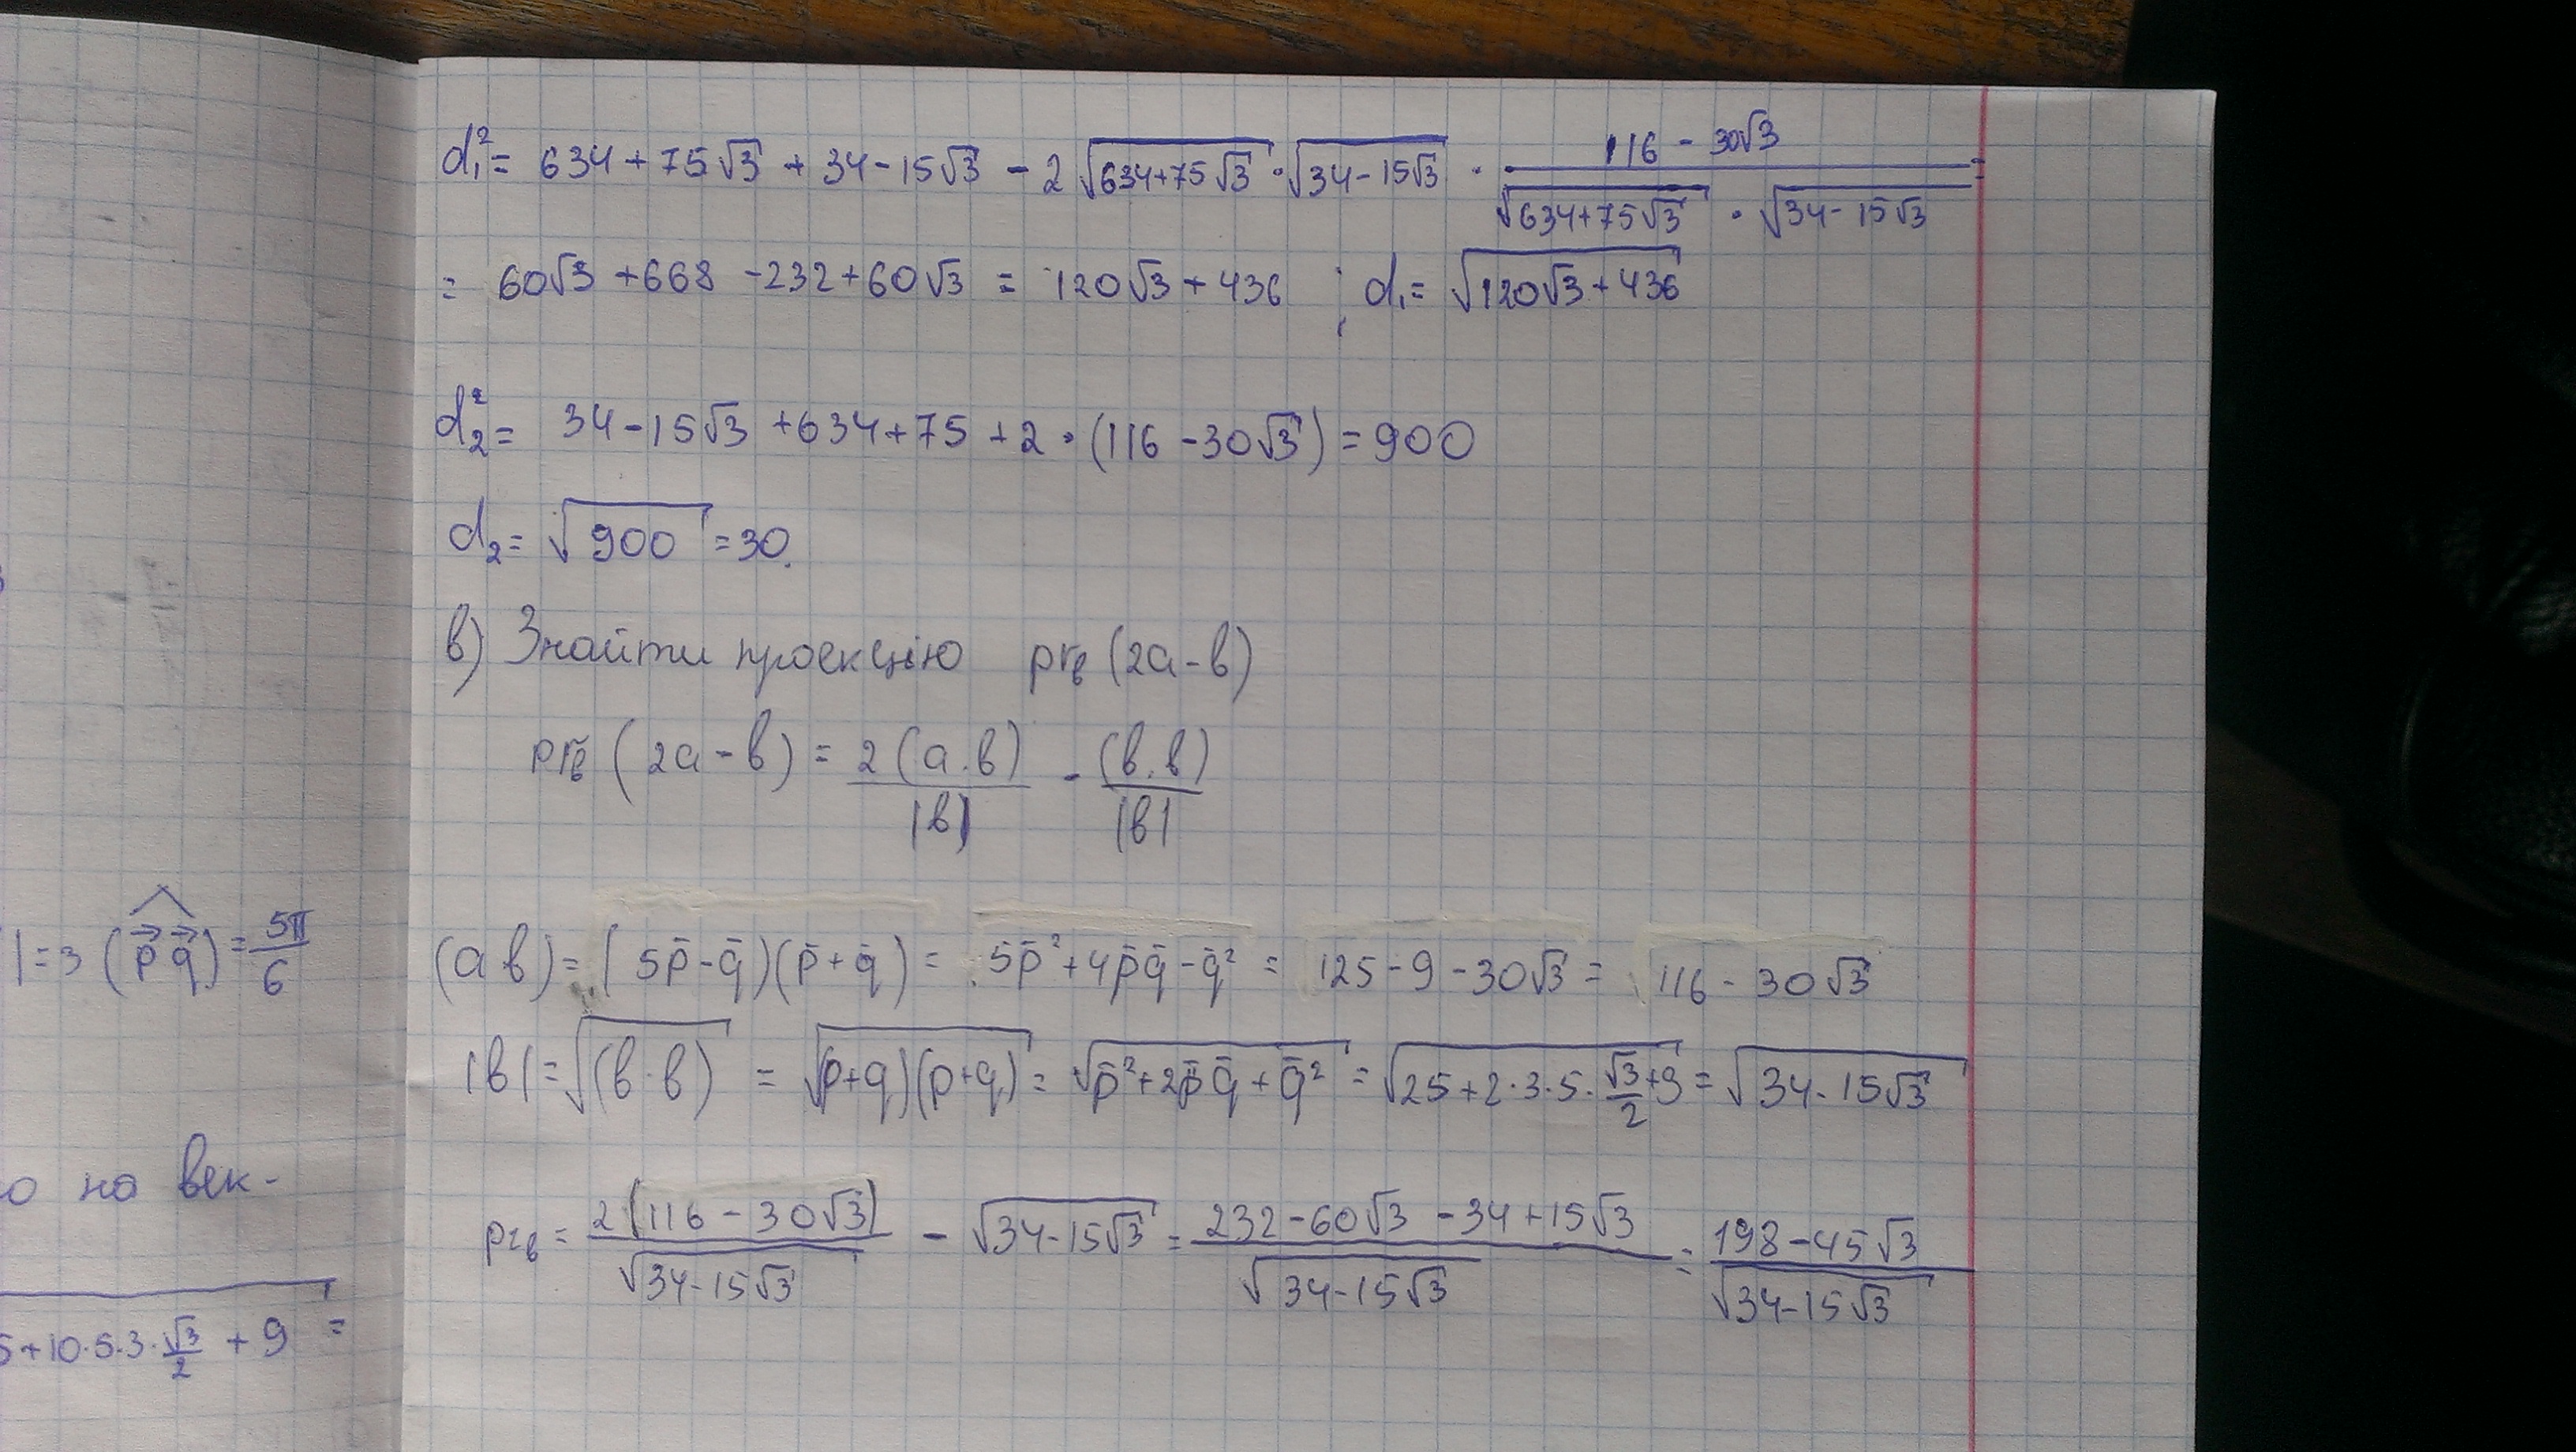 d₁² = 634 + 75√3 + 34 - 15√3 - 2√(634+75√3) · √(34-15√3) · (116 - 30√3)/(√(634+75√3) · √(34-15√3)) =
= 60√3 + 668 - 232 + 60√3 = 120√3 + 436 ; d₁ = √(120√3 + 436)
d₂² = 34 - 15√3 + 634 + 75 + 2 · (116 - 30√3) = 900
d₂ = √900 = 30.
в) Знайти проекцію prв (2a - в)
prв̄ (2a - в) = 2(a.в)/|в| - (в.в)/|в|
|= 3 (p⃗ q⃗) = 5π/6
(a в) = (5p̄ - q̄)(p̄ + q̄) = 5p̄² + 4p̄q̄ - q̄² = 125 - 9 - 30√3 = 116 - 30√3
|в| = √(в·в) = √(p+q)(p+q) = √(p̄² + 2p̄q̄ + q̄²) = √(25 + 2·3·5·√3/2 + 9) = √(34 - 15√3)
о на век-
prв = 2(116 - 30√3)/√(34-15√3) - √(34-15√3) = (232 - 60√3 - 34 + 15√3)/√(34-15√3) = (198 - 45√3)/√(34-15√3)
5+10·5·3·√3/2 + 9 =